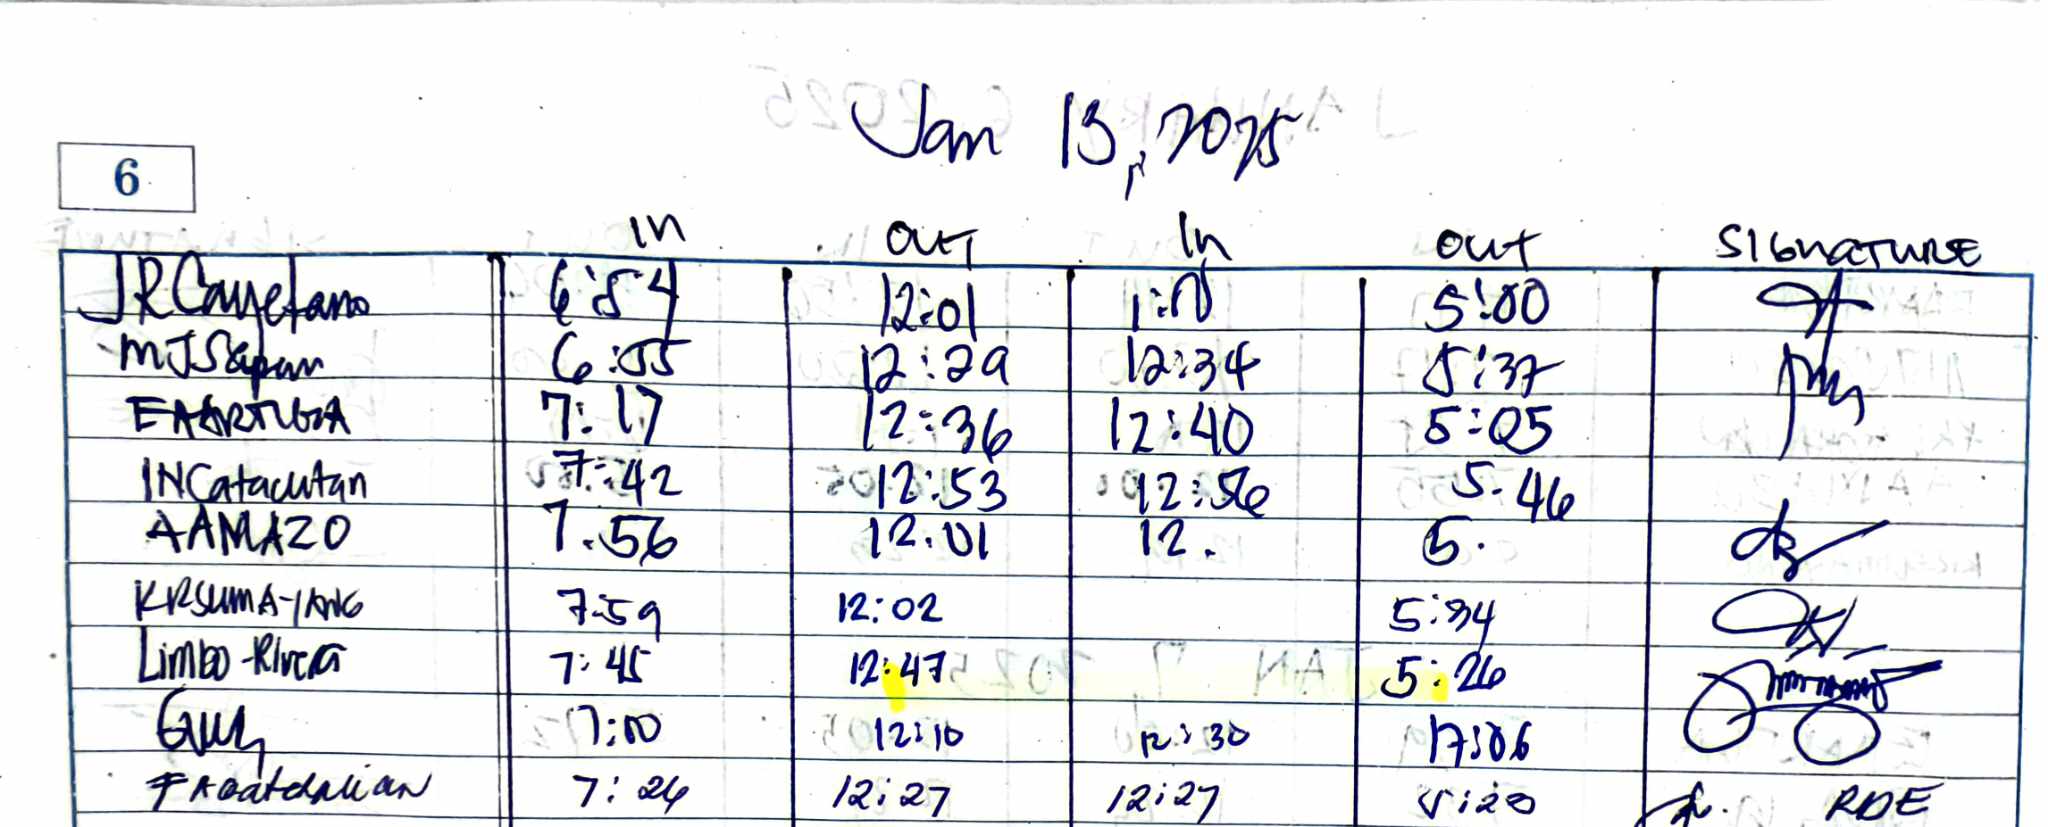 Jan 13, 2025
6
In OUT In OUT SIGNATURE
JRCayetano 6:54 12:01 1:00 5:00
MJSapan 6:55 12:29 12:34 5:37
EAARTUGA 7:17 12:36 12:40 5:05
INCatacutan 7:42 12:53 12:56 5.46
AAMAZO 7.56 12.01 12. 5.
KRSUMA-YANG 7:59 12:02 5:34
Limbo-Rivera 7:45 12:47 5:26
7:00 12:10 12:30 17:06
7:26 12:27 12:27 5:20 RDE